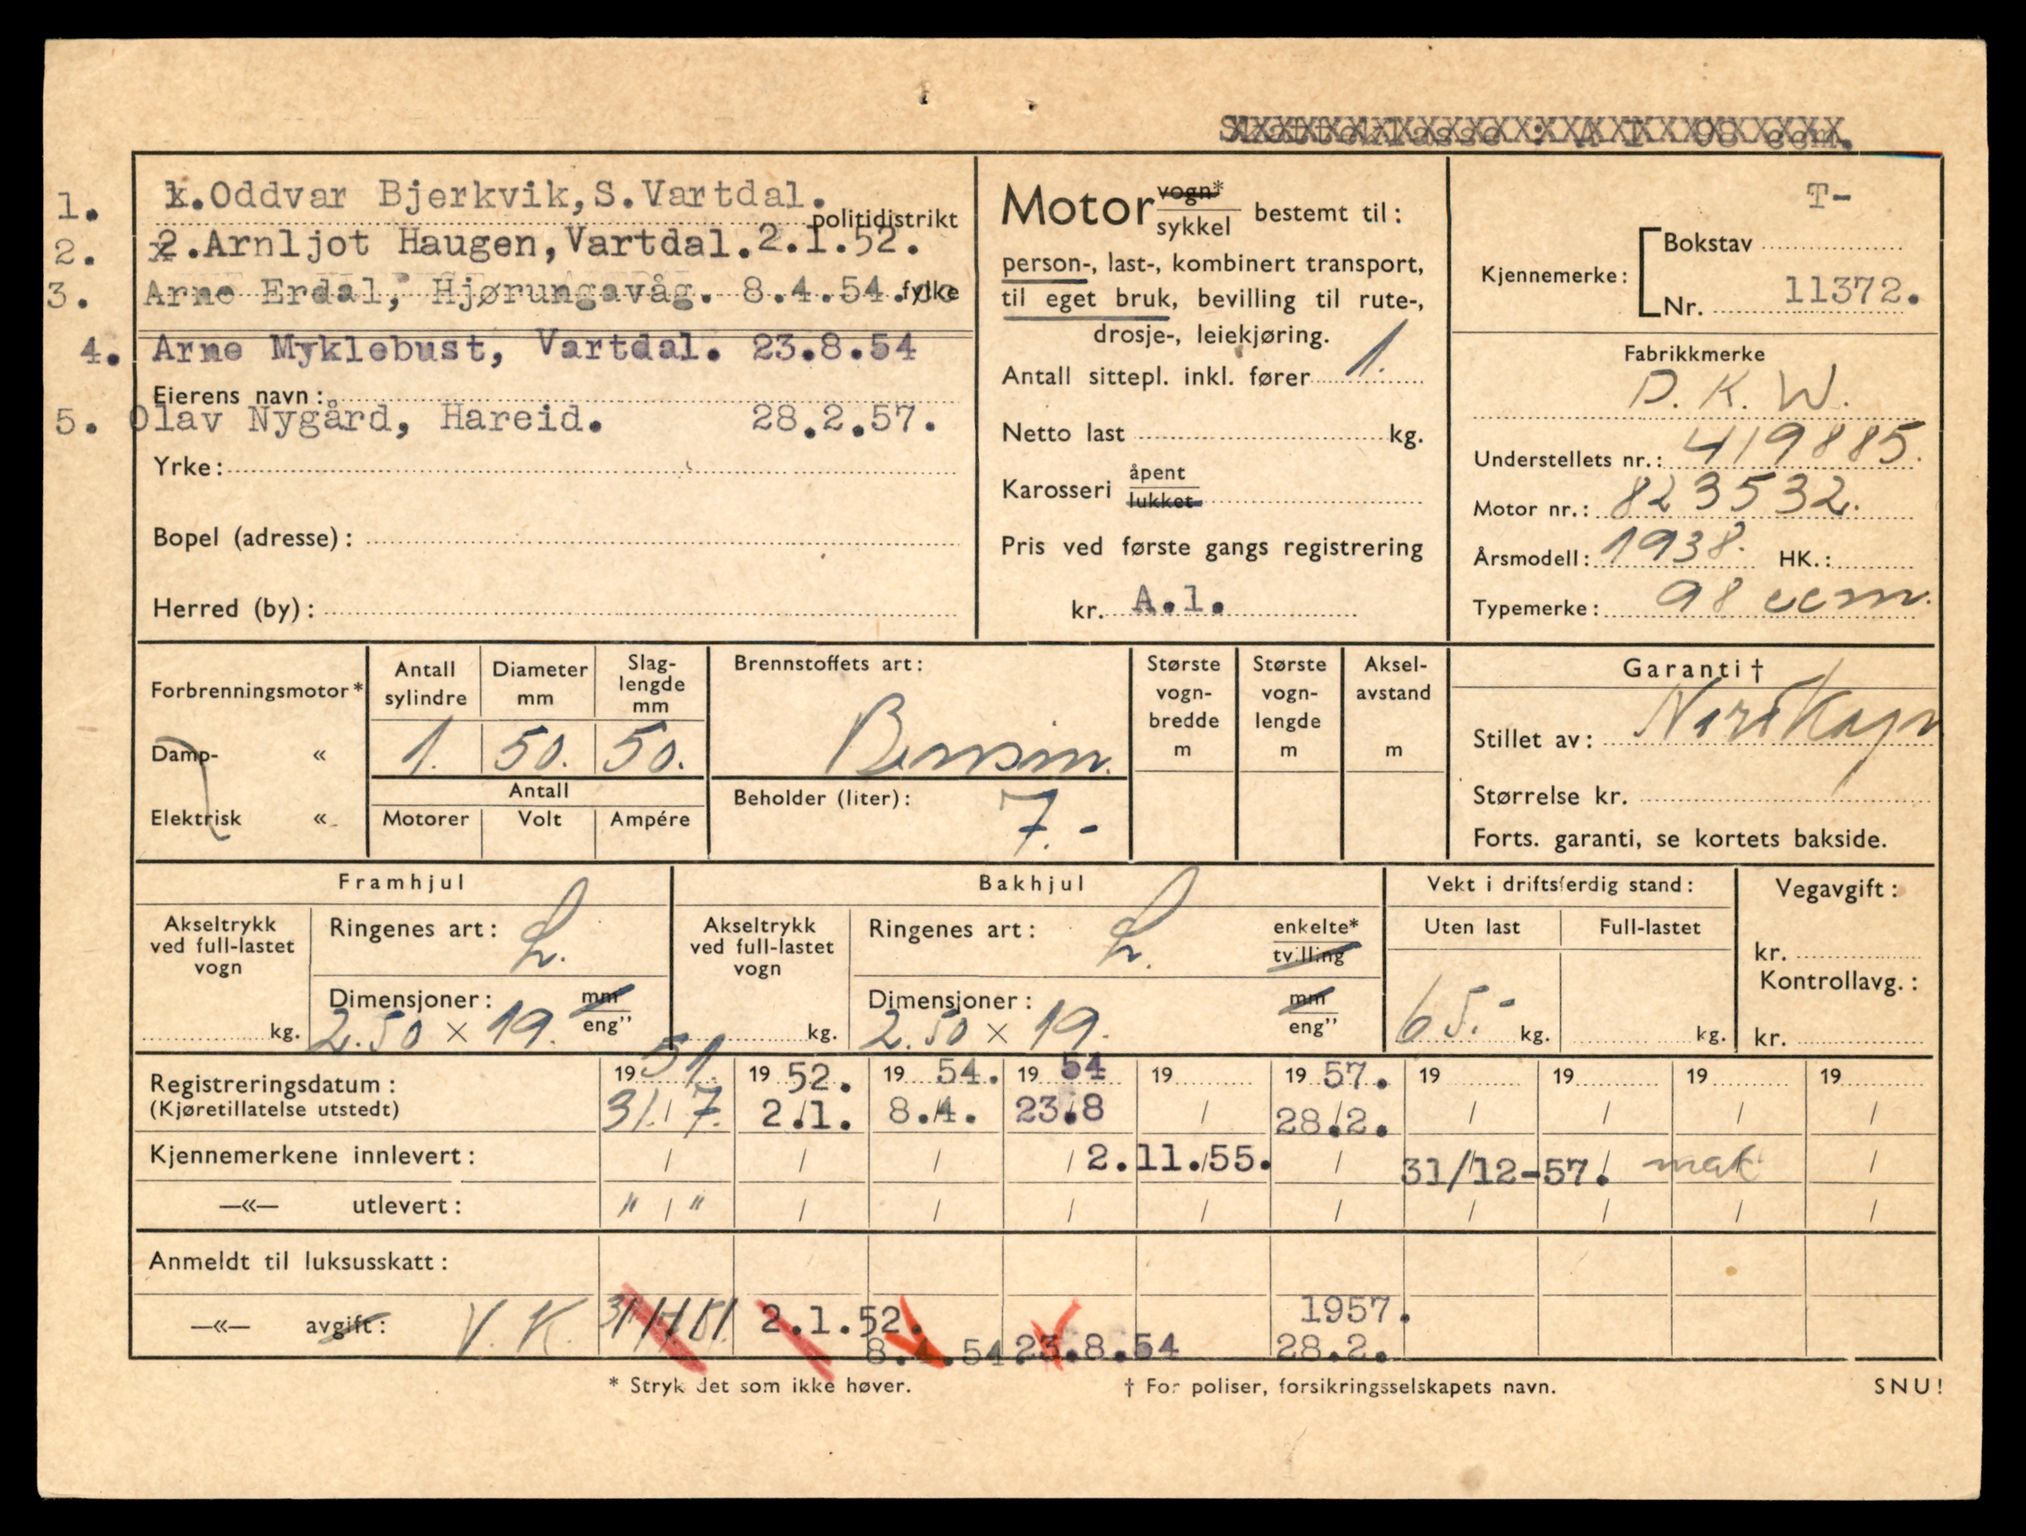 Skatteklasse : A I 98 ccm.
1. 1.Oddvar Bjerkvik,S.Vartdal.
politidistrikt
2. 2.Arnljot Haugen,Vartdal.2.1.52.
3. Arne Erdal, Hjørungavåg. 8.4.54. fylke
4. Arne Myklebust, Vartdal. 23.8.54
Eierens navn:
5. Olav Nygård, Hareid. 28.2.57.
Yrke:
Bopel (adresse):
Herred (by):
Motor vogn* sykkel bestemt til:
person-, last-, kombinert transport,
til eget bruk, bevilling til rute-,
drosje-, leiekjøring.
Antall sittepl. inkl. fører 1.
Netto last kg.
Karosseri åpent lukket
Pris ved første gangs registrering
kr. A.1.
T-
Kjennemerke: Bokstav
Nr. 11372.
Fabrikkmerke
D.K.W.
Understellets nr.: 419885.
Motor nr.: 823532.
Årsmodell: 1938. HK.:
Typemerke: 98 ccm.
Forbrenningsmotor*
Damp- «
Elektrisk «
Antall sylindre
Diameter mm
Slag-lengde mm
1. 50. 50.
Antall
Motorer Volt Ampére
Brennstoffets art:
Bensin.
Beholder (liter):
7.-
Største vogn-bredde m
Største vogn-lengde m
Aksel-avstand m
Garanti †
Stillet av:
Størrelse kr.
Forts. garanti, se kortets bakside.
Framhjul
Akseltrykk ved full-lastet vogn
kg.
Ringenes art: L.
Dimensjoner: mm eng”
2.50 × 19.
Bakhjul
Akseltrykk ved full-lastet vogn
kg.
Ringenes art: L. enkelte* tvilling
Dimensjoner: mm eng”
2.50 × 19.
Vekt i driftsferdig stand:
Uten last Full-lastet
65.- kg. kg.
Vegavgift:
kr.
Kontrollavg.:
kr.
Registreringsdatum: 19 51. 19 52. 19 54. 19 54 19 19 57. 19 19 19 19
(Kjøretillatelse utstedt) 31./7. 2./1. 8./4. 23.8 / 28./2. / / / /
Kjennemerkene innlevert: / / / / 2.11./55. / 31/12-57. /
—«— utlevert: " / " / / / / / / / / /
Anmeldt til luksusskatt:
—«— avgift: V.K. 31/7/51. 2.1.52. 8.4.54. 23.8.54 1957. 28.2.
* Stryk det som ikke høver. † For poliser, forsikringsselskapets navn. SNU!